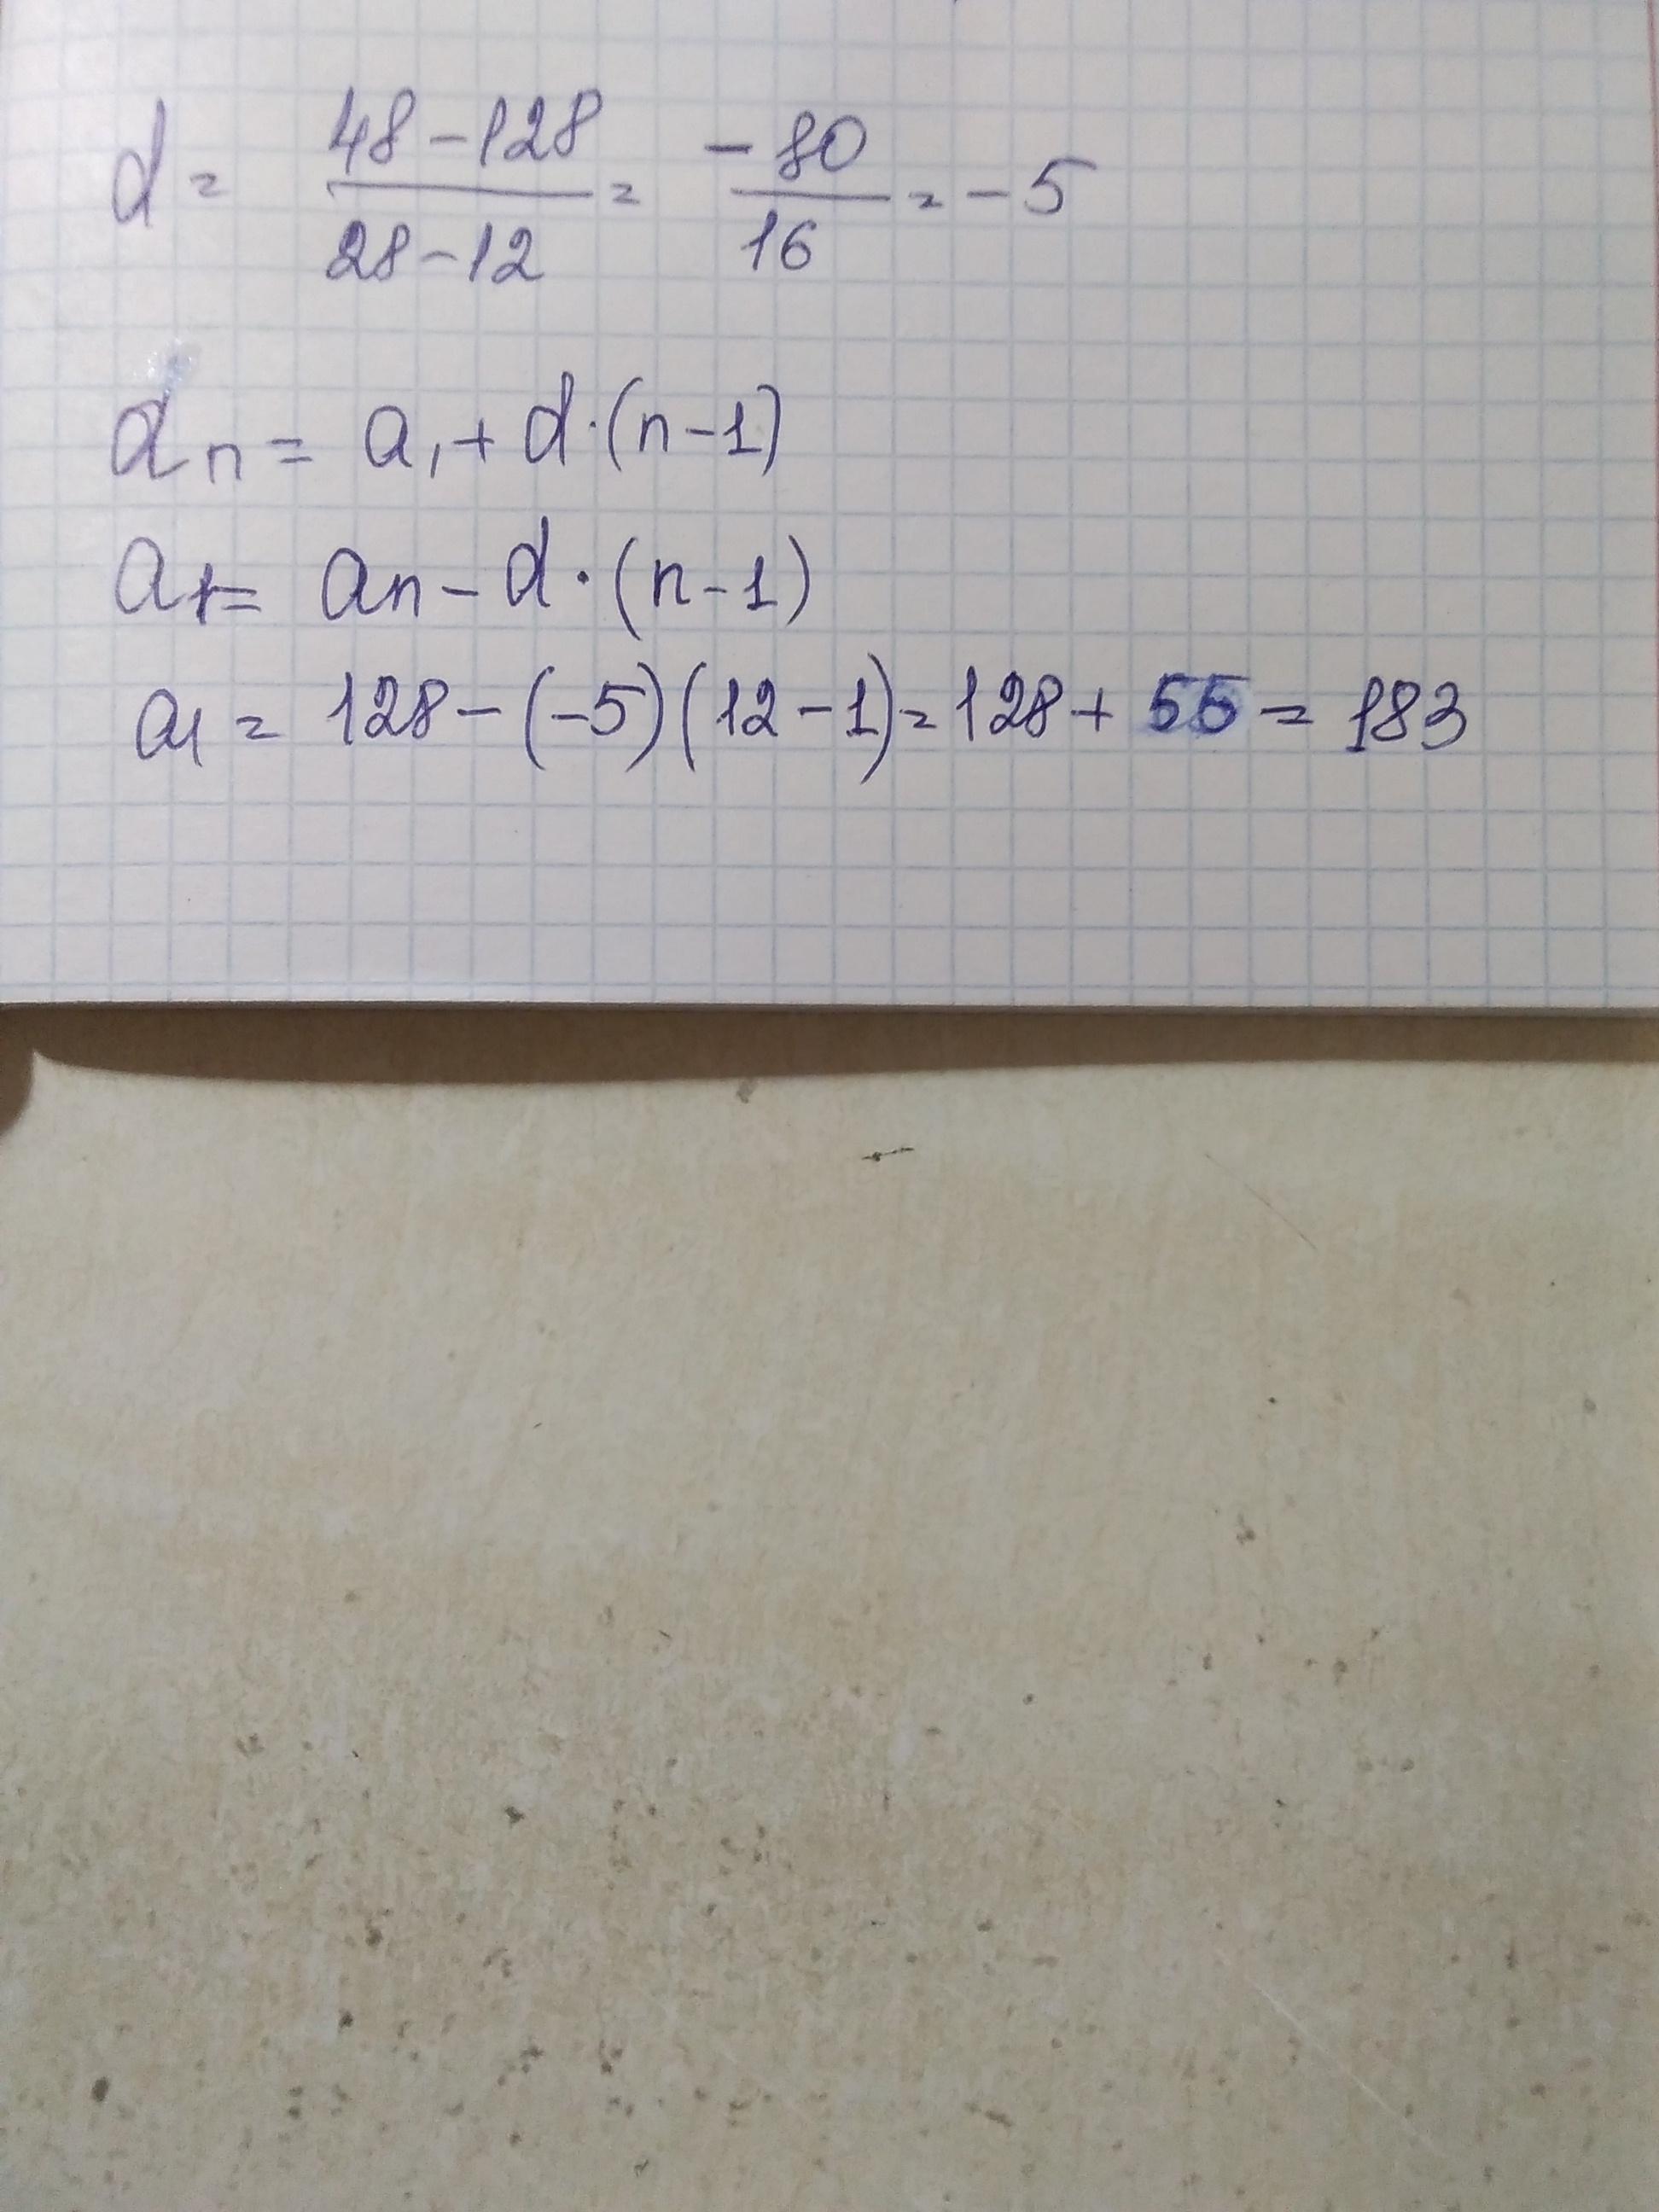 d = 48-128 / 28-12 = -80 / 16 = -5
dn = a1 + d·(n-1)
a1 = an - d·(n-1)
a1 = 128-(-5)(12-1) = 128 + 55 = 183